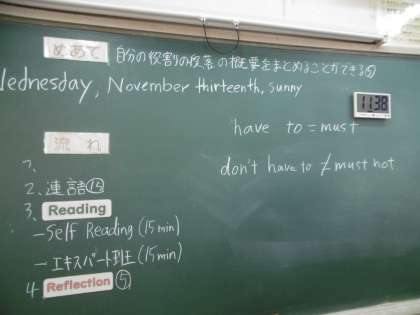 めあて 自分の役割の段落の概要をまとめることができる⑤
Wednesday, November thirteenth, sunny
11:38
have to = must
流れ
don't have to ≠ must not.
1、
2、連語⑮
3、Reading
-Self Reading (15min)
-エキスパート班 (15min)
4 Reflection ⑤